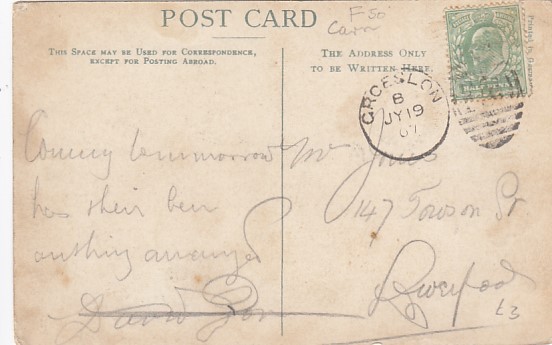 POST CARD
F50
Carn
THIS SPACE MAY BE USED FOR CORRESPONDENCE,
EXCEPT FOR POSTING ABROAD.
THE ADDRESS ONLY
TO BE WRITTEN HERE.
Printed in
GROESLON
B
JY 19
07
Coming tommorrow
has their been
anthing arranged
David
Mr Jones
147 Towson St
Liverpool
£3